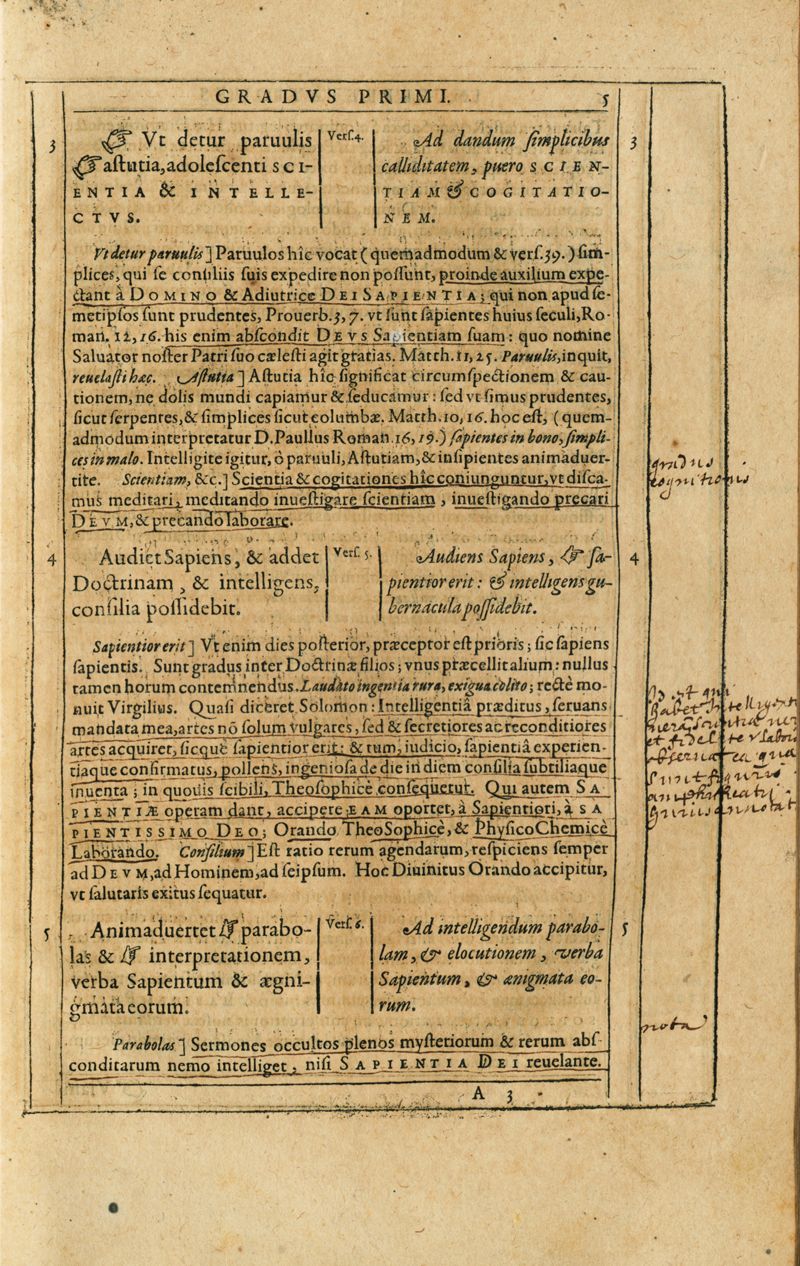 GRADVS PRIMI. 5
3 Vt detur paruulis
aſtutia, adoleſcenti SCI-
ENTIA & INTELLE-
CTVS.
Verſ. 4.
Ad dandum ſimplicibus 3
calliditatem, puero SCIEN-
TIAM & COGITATIO-
NEM.
Vt detur paruulis] Paruulos hîc vocat (quemadmodum & verſ. 39.) ſim-
plices, qui ſe conſiliis ſuis expedire non poſſunt, proinde auxilium expe-
ctant à DOMINO & Adiutrice DEI SAPIENTIA; qui non apud ſe-
metipſos ſunt prudentes, Prouerb. 3, 7. vt ſunt ſapientes huius ſeculi, Ro-
man. 12, 16. his enim abſcondit DEVS Sapientiam ſuam: quo nomine
Saluator noſter Patri ſuo cæleſti agit gratias. Matth. 11, 25. Paruulis, inquit,
reuelaſti hæc. Aſtutia] Aſtutia hîc ſignificat circumſpectionem & cau-
tionem, ne dolis mundi capiamur & ſeducamur: ſed vt ſimus prudentes,
ſicut ſerpentes, & ſimplices ſicut columbæ. Matth. 10, 16. hoc eſt, (quem-
admodum interpretatur D. Paullus Roman. 16, 19.) ſapientes in bono, ſimpli-
ces in malo. Intelligite igitur, ô paruuli, Aſtutiam, & inſipientes animaduer-
tite. Scientiam, &c.] Scientia & cogitationes hîc coniunguntur, vt diſca-
mus meditari, meditando inueſtigare ſcientiam, inueſtigando precari
DEVM, & precando laborare.
4 Audiet Sapiens, & addet
Doctrinam, & intelligens,
conſilia poſſidebit.
Verſ. 5.
Audiens Sapiens, & ſa- 4
pientior erit: & intelligens gu-
bernacula poſſidebit.
Sapientior erit] Vt enim dies poſterior, præceptor eſt prioris; ſic ſapiens
ſapientis. Sunt gradus inter Doctrinæ filios; vnus præcellit alium: nullus
tamen horum contemnendus. Laudato ingentia rura, exigua colito; rectè mo-
nuit Virgilius. Quaſi diceret Solomon: Intelligentiâ præditus, ſeruans
mandata mea, artes nō ſolum vulgares, ſed & ſecretiores ac reconditiores
artes acquiret, ſicque ſapientior erit: & tum, iudicio, ſapientiâ experien-
tiaque confirmatus, pollens, ingenioſa de die in diem conſilia ſubtiliaque
inuenta; in quouis ſcibili, Theoſophicè conſequetur. Qui autem SA-
PIENTIÆ operam dant, accipere EAM oportet, à Sapientiori, à SA
PIENTISSIMO DEO; Orando TheoSophicè, & PhyſicoChemicè
Laborando. Conſilium] Eſt ratio rerum agendarum, reſpiciens ſemper
ad DEVM, ad Hominem, ad ſeipſum. Hoc Diuinitus Orando accipitur,
vt ſalutaris exitus ſequatur.
5 Animaduertet parabo-
las & interpretationem,
verba Sapientum & ægni-
gmata eorum.
Verſ. 6.
Ad intelligendum parabo- 5
lam, & elocutionem, verba
Sapientum, & ænigmata eo-
rum.
Parabolas] Sermones occultos plenos myſteriorum & rerum abſ-
conditarum nemo intelliget, niſi SAPIENTIA DEI reuelante.
A 3
nota